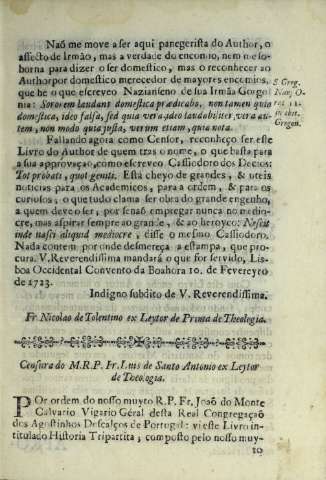 Naõ me move a ser aqui panegerista do Author, o
affecto de Irmão, mas a verdade do encomio, nem me so-
borna para dizer o ser domestico, mas o reconhecer ao
Author por domestico merecedor de mayores encomios,
que he o que escreveo Nazianseno de sua Irmãa Gorgo-
nia: Sororem laudans domestica prædicabo, non tamen quia
domestica, ideo falsa, sed quia vera, ideo laudabiliter, vera au-
tem, non modo quia justa, verum etiam, quia nota.
S. Greg.
Naz, O-
rat. 11.
in obit.
Gregon.
Fallando agora como Censor, reconheço ser este
Livro do Author de quem tras o nome, o que basta para
a sua approvaçaõ, como escreveo Cassiodoro dos Decios:
Tot probati, quot geniti. Está cheyo de grandes, & uteis
noticias para os Academicos, para a ordem, & para os
curiosos; o que tudo clama ser obra do grande engenho,
a quem deve o ser, por senaõ empregar nunca no medio-
cre, mas aspirar sempre ao grande, & ao heroyco: Nescit
inde nasci aliquid mediocre, disse o mesmo Cassiodoro.
Nada contem por onde desmereça a estampa, que pro-
cura. V. Reverendissima mandará o que for servido, Lis-
boa Occidental Convento da Boahora 10. de Fevereyro
de 1723.
Indigno subdito de V. Reverendissima.
Fr. Nicolao de Tolentino ex Leytor de Prima de Theologia.
Censura do M.R.P. Fr. Luis de Santo Antonio ex Leytor
de Theologia.
POr ordem do nosso muyto R.P. Fr. Joaõ do Monte
Calvario Vigario Géral desta Real Congregaçaõ
dos Agostinhos Descalços de Portugal: vi este Livro in-
titulado Historia Tripartita, composto pelo nosso muy-
to